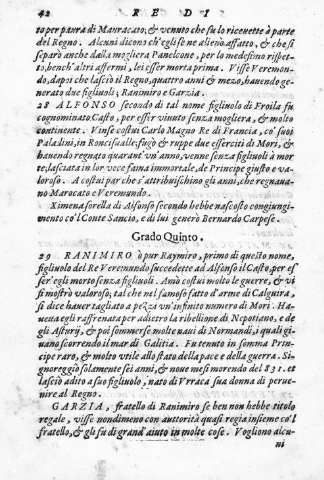 42 R E D I
to per paura di Mauracato, & venuto che fu lo riceuette à parte
del Regno. Alcuni dicono ch'egli se ne alienò affatto, & che si
separò anche dalla mogliera Panelcone, per lo medesimo rispet-
to, bench'altri affermi, lei esser morta prima. Visse Veremon-
do, dapoi che lasciò il Regno, quattro anni & mezo, hauendo ge-
nerato due figliuoli; Ranimiro e Garzia.
28 ALFONSO secondo di tal nome figliuolo di Froila fu
cognominato Casto, per esser viuuto senza mogliera, & molto
continente. Vinse costui Carlo Magno Re di Francia, co' suoi
Paladini, in Roncisualle; fugò & ruppe due esserciti di Mori, &
hauendo regnato quarant'un'anno, venne senza figliuoli à mor
te; lasciata in lor vece fama immortale, de Principe giusto e va-
loroso. A costui par che s'attribuischino gli anni, che regnaua-
no Mauracato e Veremundo.
Ximena sorella di Alfonso secondo hebbe nascosto congiungi-
mento co'l Conte Sancio, e di lui generò Bernardo Carpese.
Grado Quinto.
29 RANIMIRO ò pur Raymiro, primo di questo nome,
figliuolo del Re Veremundo succedette ad Alfonso il Casto, per es
ser egli morto senza figliuoli. Amò costui molto le guerre, & vi
si mostrò valoroso; tal che nel famoso fatto d'arme di Calgurra,
si dice hauer tagliato a pezza vn'infinito numero di Mori. Ha-
ueua egli raffrenata per adietro la ribellione di Nepotiano, e de
gli Asturij, & poi sommerse molte naui di Normandi, i quali gi-
uano scorrendo il mar di Galitia. Fu tenuto in somma Princi-
pe raro, & molto vtile allo stato della pace e della guerra. Si-
gnoreggiò solamente sei anni, & noue mesi morendo del 831. et
lasciò adito a suo figliuolo, nato di Vrraca sua donna di perue-
nire al Regno.
GARZIA, fratello di Ranimiro se ben non hebbe titolo
regale, visse nondimeno con autorità quasi regia insieme co'l
fratello, & gli fu di grand'aiuto in molte cose. Vogliono alcu-
ni